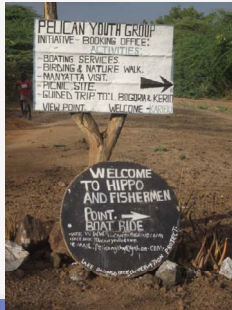 PELICAN YOUTH GROUP
INITIATIVE - BOOKING OFFICE:
ACTIVITIES
- BOATING SERVICES.
- BIRDING & NATURE WALK.
- MANYATTA VISIT.
- PICNIC SITE.
- GUIDED TRIP TO L. BOGORIA & KERIO
VIEW POINT. WELCOME - KARIBU
WELCOME
TO HIPPO
AND FISHERMEN
POINT.
BOAT RIDE